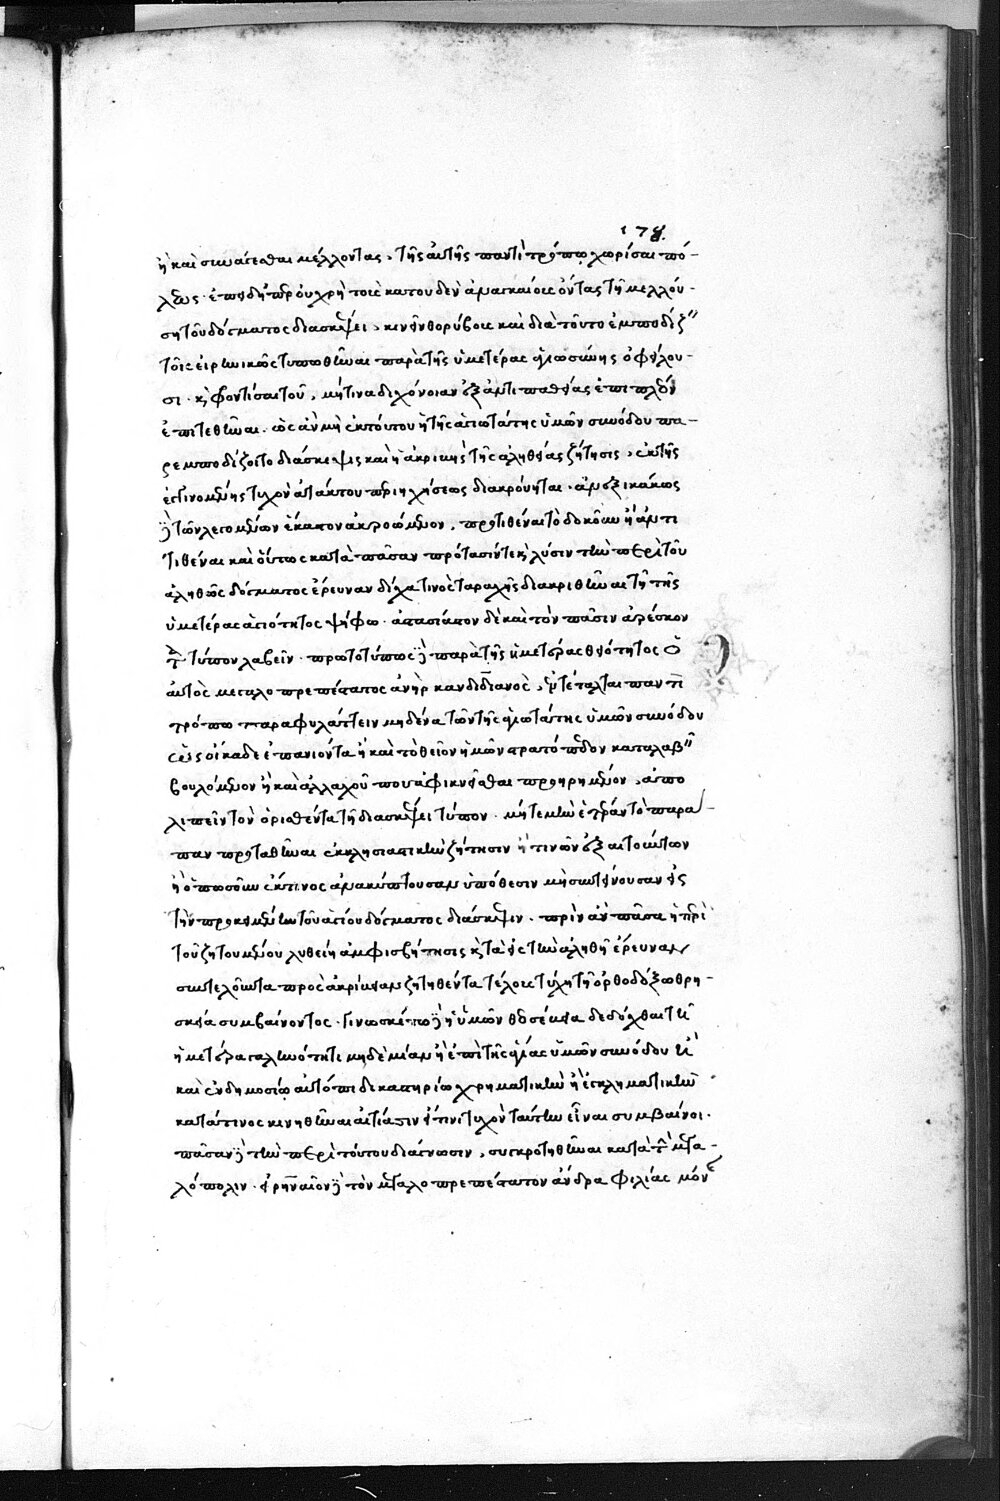 178.
ἢ καὶ συνάγεσθαι μέλλοντας, τῆς αὐτῆς παντὶ τρόπῳ χωρίσαι πό-
λεως· ἐπειδήπερ οὐ χρὴ τοὺς κατ' οὐδὲν ἀναγκαίους ὄντας τῇ μελλού-
σῃ τοῦ δόγματος διασκέψει, κινεῖν θορύβους καὶ διὰ τοῦτο ἐμποδίζειν
τοῖς εἰρηνικῶς τυπωθῆναι παρὰ τῆς ὑμετέρας ἁγιωσύνης ὀφείλου-
σι· καὶ φροντίσαι τοῦ, μήτινα διχόνοιαν ἐξ ἀντιπαθείας ἐπιπλεῖον
ἐπιτεθῆναι. ὡς ἂν μὴ ἐκ τούτου ἡ τῆς ἁγιωτάτης ὑμῶν συνόδου πα-
ρεμποδίζοιτο διάσκεψις καὶ ἡ ἀκριβὴς τῆς ἀληθείας ζήτησις, ἐκ τῆς
ἐγγινομένης τυχὸν ἀτάκτου περιηχήσεως διακρούηται· ἀνεξικάκως
δὲ τῶν λεγομένων ἕκαστον ἀκροώμενον, προστιθέναι τὸ δοκοῦν ἢ ἀντι
τιθέναι καὶ οὕτως κατὰ πᾶσαν πρότασίν τε καὶ λύσιν τὴν περὶ τοῦ
ἀληθοῦς δόγματος ἔρευναν δίχα τινὸς ταραχῆς διακριθῆναι τῇ τῆς
ὑμετέρας ἁγιότητος ψήφῳ· ἀστασίαστον δὲ καὶ τὸν πᾶσιν ἀρέσκον
τα τύπον λαβεῖν· πρωτοτύπως δὲ παρὰ τῆς ἡμετέρας θειότητος ὁ
αὐτὸς μεγαλοπρεπέστατος ἀνὴρ κανδιδιανὸς, ἐντέταλται παντὶ
τρόπῳ παραφυλάττειν μηδένα τῶν τῆς ἁγιωτάτης ὑμῶν συνόδου
οἴκαδε ἐπανιόντα ἢ καὶ τὸ θεῖον ἡμῶν στρατόπεδον καταλαβεῖν
βουλόμενον ἢ καὶ ἀλλαχοῦ που ἀφικνεῖσθαι προῃρημένον, ἀπο
λιπεῖν τὸν ὁρισθέντα τῇ διασκέψει τόπον· μήτε μὴν ἑτέραν τὸ παρά-
παν προσταθῆναι ἐκκλησιαστικὴν ζήτησιν ἤ τινων ἐξ αἰτούντων
ἢ ὁπωσοῦν ἔκ τινος ἀνακύπτουσαν ὑπόθεσιν μὴ συντείνουσαν εἰς
τὴν προκειμένην τοῦ ἁγίου δόγματος διάσκεψιν· πρὶν ἂν πᾶσα ἡ περὶ
τοῦ ζητουμένου λυθείη ἀμφισβήτησις καὶ τὰ εἰς τὴν ἀληθῆ ἔρευναν
συντελοῦντα πρὸς ἀκρίβειαν ζητηθέντα τέλους τύχῃ τῇ ὀρθοδόξῳ θρη-
σκείᾳ συμβαίνοντος· γινωσκέτω δὲ ἡ ὑμῶν θεοσέβεια δεδόχθαι τῇ
ἡμετέρᾳ γαληνότητι μηδεμίαν ἢ ἐπὶ τῆς ἁγίας ὑμῶν συνόδου ἢ
καὶ ἐν δημοσίῳ αὐτόπι δικαστηρίῳ χρηματικὴν ἢ ἐγκληματικὴν
κατά τινος κινηθῆναι αἰτίασιν εἴ τινι τυχὸν ταύτην εἶναι συμβαίνοι·
πᾶσαν δὲ τὴν περὶ τούτου διάγνωσιν, συγκροτηθῆναι κατὰ τὴν μεγα-
λόπολιν· εἰρηναῖον δὲ τὸν μεγαλοπρεπέστατον ἄνδρα φιλίας μόνης